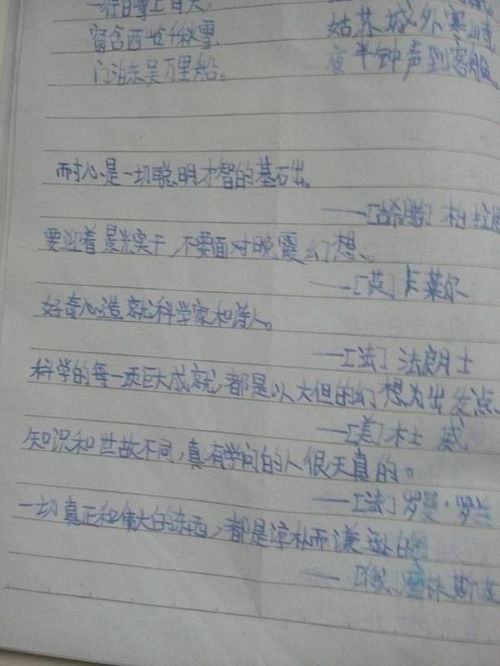 一行白鹭上青天,
窗含西岭千秋雪
门泊东吴万里船。
姑苏城外寒山寺
夜半钟声到客船
耐心是一切聪明才智的基石出
——[古希腊] 柏拉图
要迎着晨光实干,不要面对晚霞幻想、
——[英] 卡莱尔
好奇心造就科学家和诗人。
——[法] 法朗士
科学的每一项巨大成就,都是以大但的幻想为出发点
——[美] 杜威
知识和世故不同,真有学问的人很天真的。
——[法] 罗曼·罗兰
一切真正和伟大的东西,都是淳朴而谦